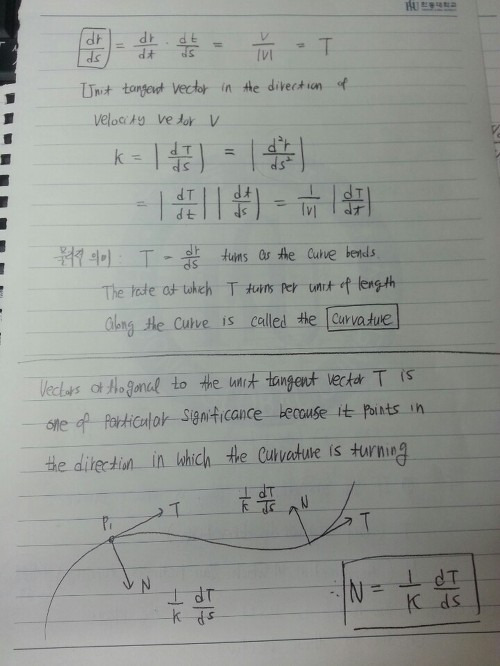 한동대학교
dr/ds = dr/dt · dt/ds = v/|v| = T
Unit tangent vector in the direction of
velocity vector v
K = |dT/ds| = |d²r/ds²|
= |dT/dt| |dt/ds| = 1/|v| |dT/dt|
의미 : T = dr/ds turns as the curve bends.
The rate at which T turns per unit of length
along the curve is called the curvature
Vectors orthogonal to the unit tangent vector T is
one of particular significance because it points in
the direction in which the curvature is turning
P₁ T
N
1/K dT/ds
1/K dT/ds N
T
∴ N = 1/K dT/ds